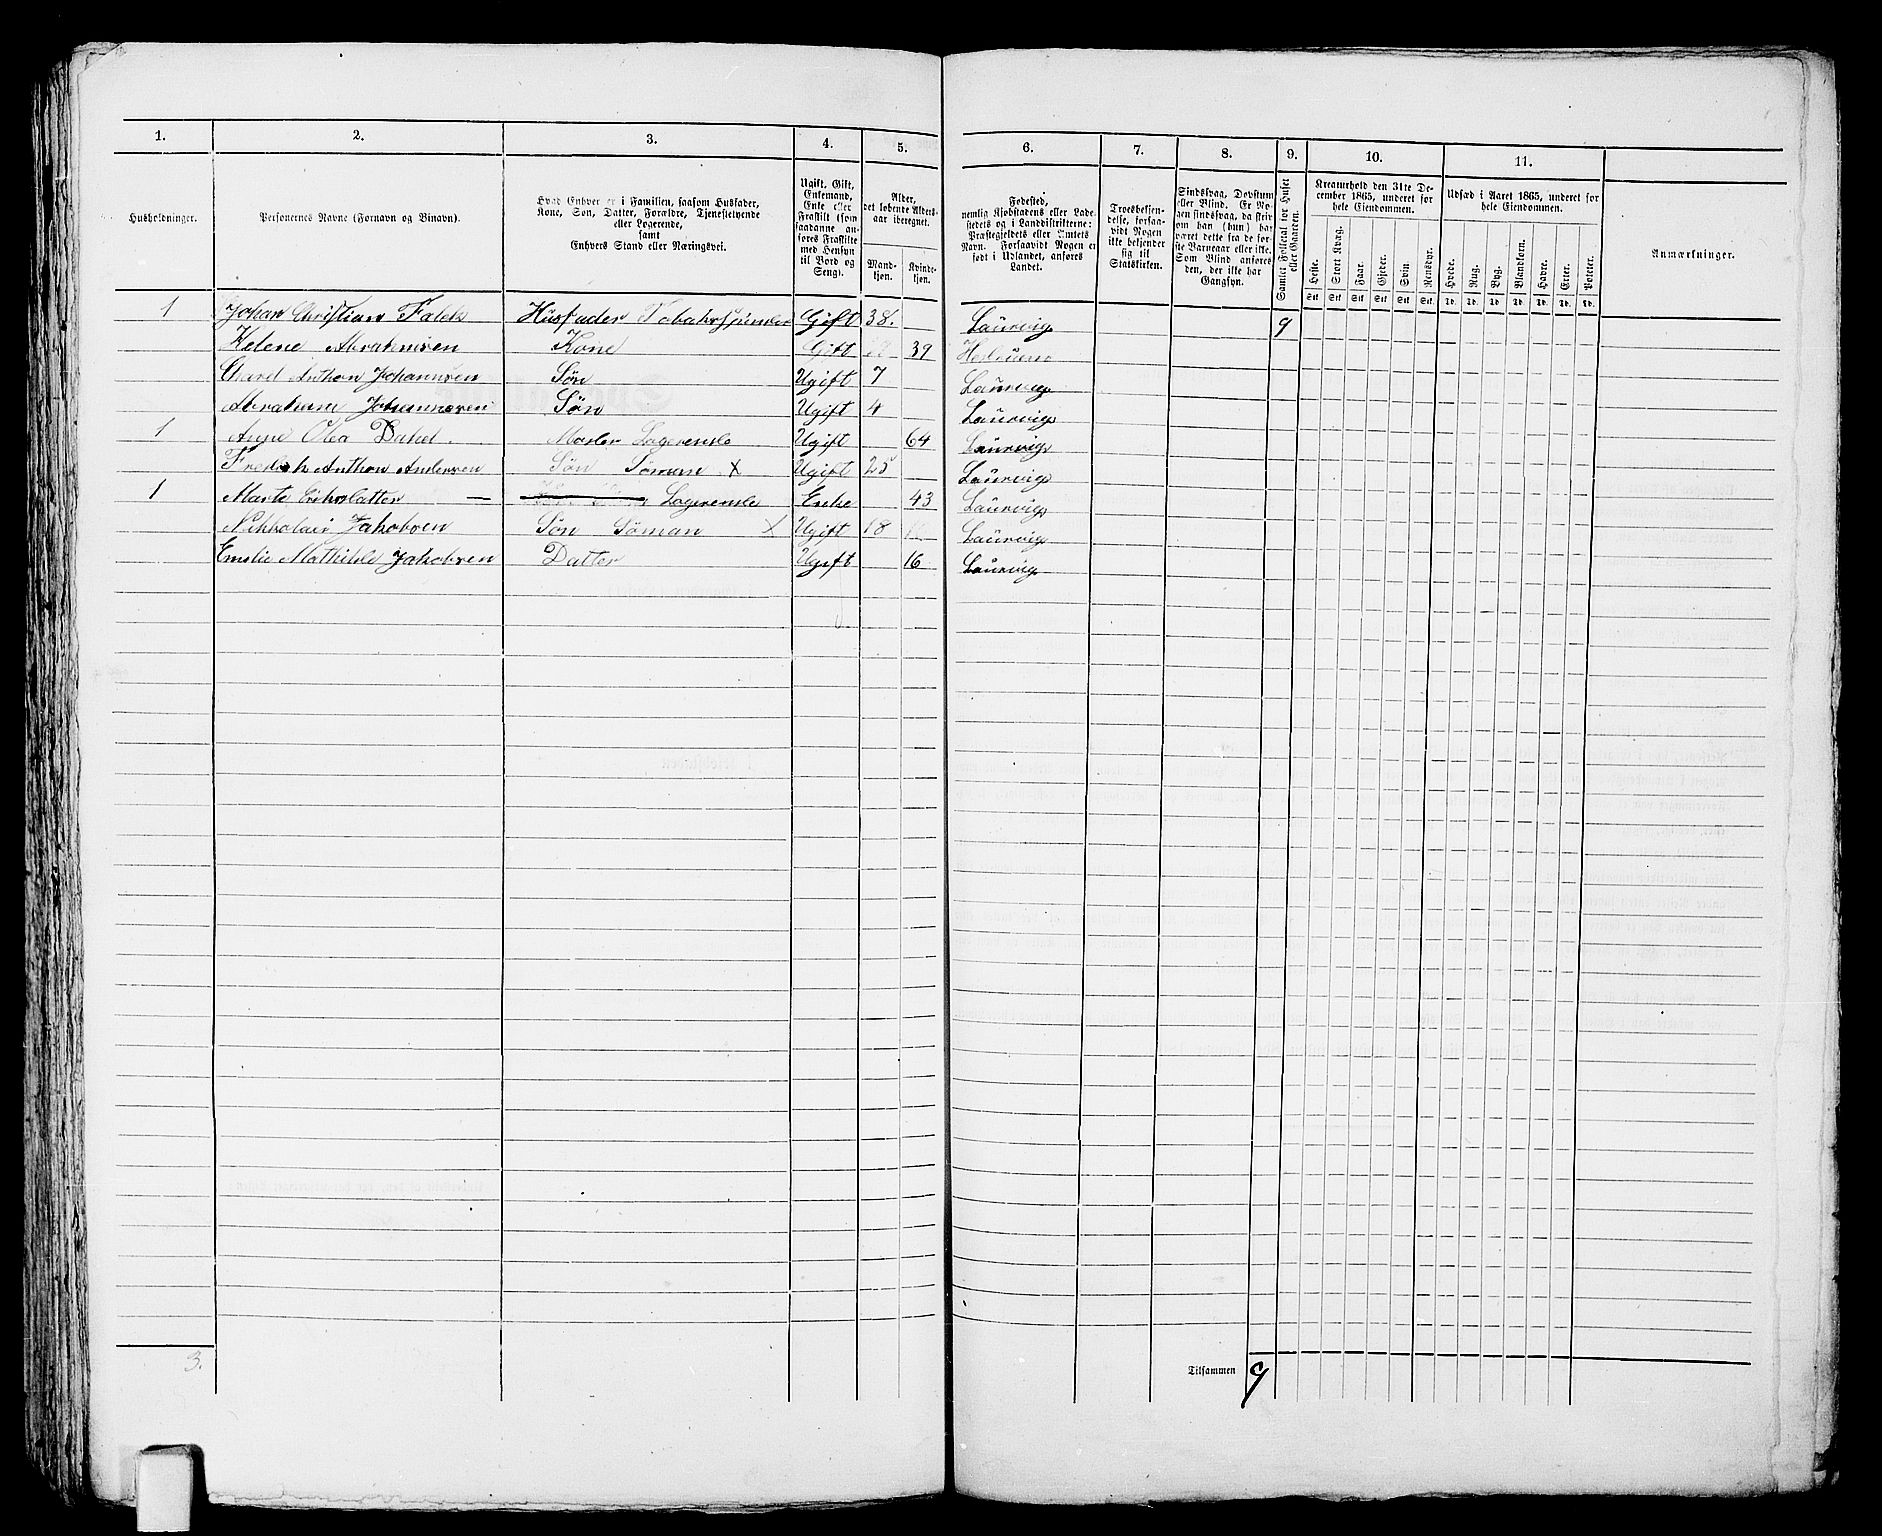 1. 2. 3. 4. 5. 6. 7. 8. 9. 10. 11.
Husholdninger.
Personernes Navne (Fornavn og Binavn).
Hvad Enhver er i Familien, saasom Husfader,
Kone, Søn, Datter, Forældre, Tjenestetyende
eller Logerende,
samt
Enhvers Stand eller Næringsvei.
Ugift, Gift,
Enkemand,
Enke eller
Fraskilt (som
saadanne an-
føres Fraskilte
med Hensyn
til Bord og
Seng).
Alder,
det løbende Alders-
aar iberegnet.
Mand-
kjøn.
Kvinde-
kjøn.
Fødested,
nemlig Kjøbstadens eller Lade-
stedets og i Landdistrikterne:
Præstegjeldets eller Amtets
Navn. Forsaavidt Nogen er
født i Udlandet, anføres
Landet.
Troesbekjen-
delse, forsaa-
vidt Nogen
ikke bekjender
sig til
Statskirken.
Sindssvag, Døvstum
eller Blind. Er No-
gen sindssvag, da skriv
om han (hun) har
været dette fra de før-
ste Barneaar eller ikke.
Som Blind anføres
den, der ikke har
Gangsyn.
Samlet Folketal for Huset
eller Gaarden.
Kreaturhold den 31te De-
cember 1865, underet for
hele Eiendommen.
Heste. Stort Kvæg. Faar. Gjeder. Svin. Rensdyr.
Stk. Stk. Stk. Stk. Stk. Stk.
Udsæd i Aaret 1865, underet for
hele Eiendommen.
Hvede. Rug. Byg. Blandkorn. Havre. Erter. Poteter.
Td. Td. Td. Td. Td. Td. Td.
Anmærkninger.
1 Johan Christian Falck Husfader Gift 38. Laurvig 9
Helene Abrahmsen Kone Gift 39
Anthon Johannsen Søn Ugift 7 Laurvig
Abraham Johannesen Søn Ugift 4 Laurvig
1 Anne Olea Dahl Moder Logerende Ugift 64 Laurvig
Fredrik Anthon Andersen Søn Søman X Ugift 25 Laurvig
1 Marte Eriksdatter — Logerende Enke 43 Laurvig
Nikkolai Jakobsen Søn Søman X Ugift 18 Laurvig
Emelie Mathilde Jakobsen Datter Ugift 16 Laurvig
3.
Tilsammen 9